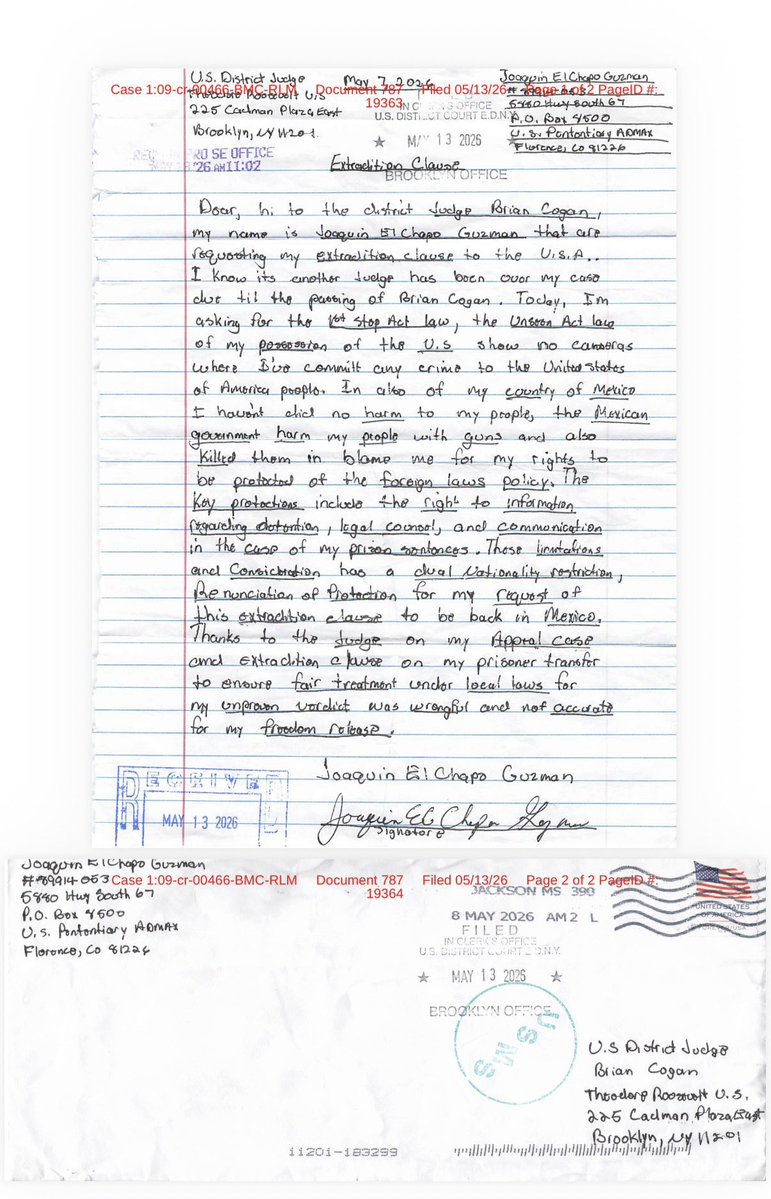 U.S. District Judge
May 7, 2026
Joaquin El Chapo Guzman
Case 1:09-cr-00466-BMC-RLM Document 787 Filed 05/13/26 Page 1 of 2 PageID #:
19363
Theodore Roosevelt U.S
# 89914-053
225 Cadman Plaza East
IN CLERK'S OFFICE
5880 Hwy South 67
U.S. DISTRICT COURT E.D.N.Y.
P.O. Box 8500
Brooklyn, NY 11201.
★ MAY 13 2026 ★
U.S. Pentontiary ADMAX
Florence, Co 81226
PRO SE OFFICE
'26 AM 11:02
Extradition Clause
BROOKLYN OFFICE
Dear, hi to the district Judge Brian Cogan,
my name is Joaquin El Chapo Guzman that are
requesting my extradition clause to the U.S.A..
I know its another Judge has been over my case
due til the passing of Brian Cogan. Today, I'm
asking for the 1st Stop Act law, the Unseen Act law
of my possession of the U.S show no cameras
where I've committ any crime to the United states
of America people. In also of my country of Mexico
I haven't did no harm to my people, the Mexican
government harm my people with guns and also
killed them in blame me for my rights to
be protected of the foreign laws policy. The
Key protections include the right to information
regarding detention, legal counsel, and communication
in the case of my prison sentences. These limitations
and Consideration has a dual Nationality restriction,
Renunciation of Protection for my request of
this extradition clause to be back in Mexico.
Thanks to the Judge on my Appeal case
and extradition clause on my prisoner transfer
to ensure fair treatment under local laws for
my unproven verdict was wrongful and not accurate
for my freedom release.
Joaquin El Chapo Guzman
RECEIVED
MAY 13 2026
Joaquin El Chapo Guzman
Signature
Joaquin El Chapo Guzman
# 89914-053
Case 1:09-cr-00466-BMC-RLM Document 787 Filed 05/13/26 Page 2 of 2 PageID #:
19364
5880 Hwy South 67
P.O. Box 8500
U.S. Pentontiary ADMAX
Florence, Co 81226
JACKSON MS 390
8 MAY 2026 AM 2 L
FILED
IN CLERK'S OFFICE
U.S. DISTRICT COURT E.D.N.Y.
★ MAY 13 2026 ★
BROOKLYN OFFICE
UNITED STATES
OF AMERICA
USMS
U.S District Judge
Brian Cogan
Theodore Roosevelt U.S.
225 Cadman Plaza East
Brooklyn, NY 11201
11201-183299